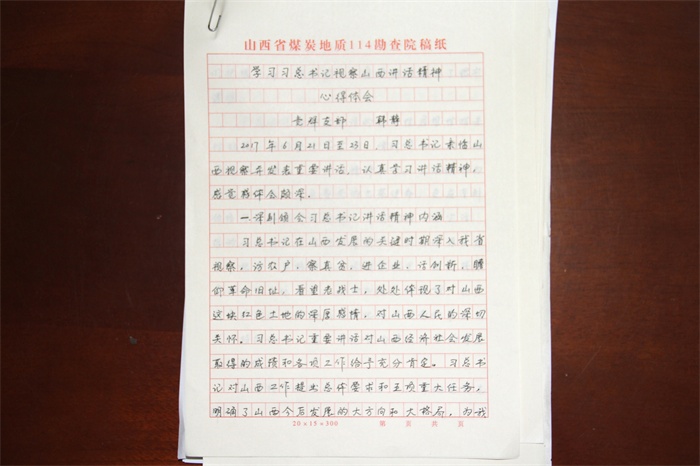 山西省煤炭地质114勘查院稿纸
学习习总书记视察山西讲话精神
心得体会
支部 韩静
2017年6月21日至23日，习总书记来临山
西视察并发表重要讲话。认真学习讲话精神，
感觉感体会颇深。
一、深刻领会习总书记讲话精神内涵
习总书记在山西发展的关键时期深入我省
视察，访农户，察真贫，进企业，话创新，瞻
仰革命旧址，看望老战士，处处体现了对山西
这块红色土地的深厚感情，对山西人民的深切
关怀。习总书记重要讲话对山西经济社会发展
取得的成绩和各项工作给予充分肯定。习总书
记对山西工作提出总体要求和五项重大任务，
明确了山西今后发展的大方向和大格局，为我
20×15=300 第 页 共 页